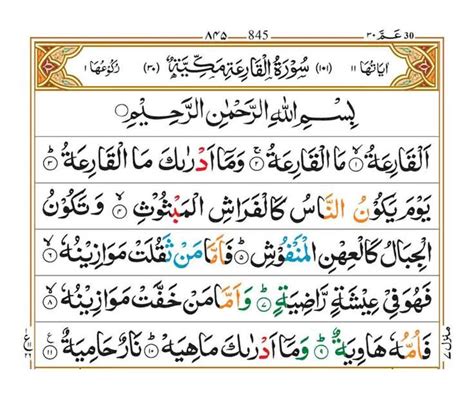 ۸۴۵ 845 عَمَّ ۳۰ 30
اٰيَاتُهَا ۱۱ (۱۰۱) سُوْرَةُ الْقَارِعَةِ مَكِّيَّةٌ (۳۰) رُكُوْعُهَا ۱
بِسْمِ اللّٰهِ الرَّحْمٰنِ الرَّحِيْمِ
اَلْقَارِعَةُ ۱ مَا الْقَارِعَةُ ۲ وَمَاۤ اَدْرٰىكَ مَا الْقَارِعَةُ ۳
يَوْمَ يَكُوْنُ النَّاسُ كَالْفَرَاشِ الْمَبْثُوْثِ ۴ وَتَكُوْنُ
الْجِبَالُ كَالْعِهْنِ الْمَنْفُوْشِ ۵ فَاَمَّا مَنْ ثَقُلَتْ مَوَازِيْنُهٗ ۶
فَهُوَ فِيْ عِيْشَةٍ رَّاضِيَةٍ ۷ وَاَمَّا مَنْ خَفَّتْ مَوَازِيْنُهٗ ۸
فَاُمُّهٗ هَاوِيَةٌ ۹ وَمَاۤ اَدْرٰىكَ مَاهِيَهْ ۱۰ نَارٌ حَامِيَةٌ ۱۱
منزل ۷